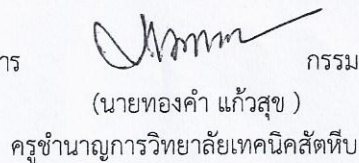 าร กรรม
(นายทองคำ แก้วสุข )
ครูชำนาญการวิทยาลัยเทคนิคสัตหีบ